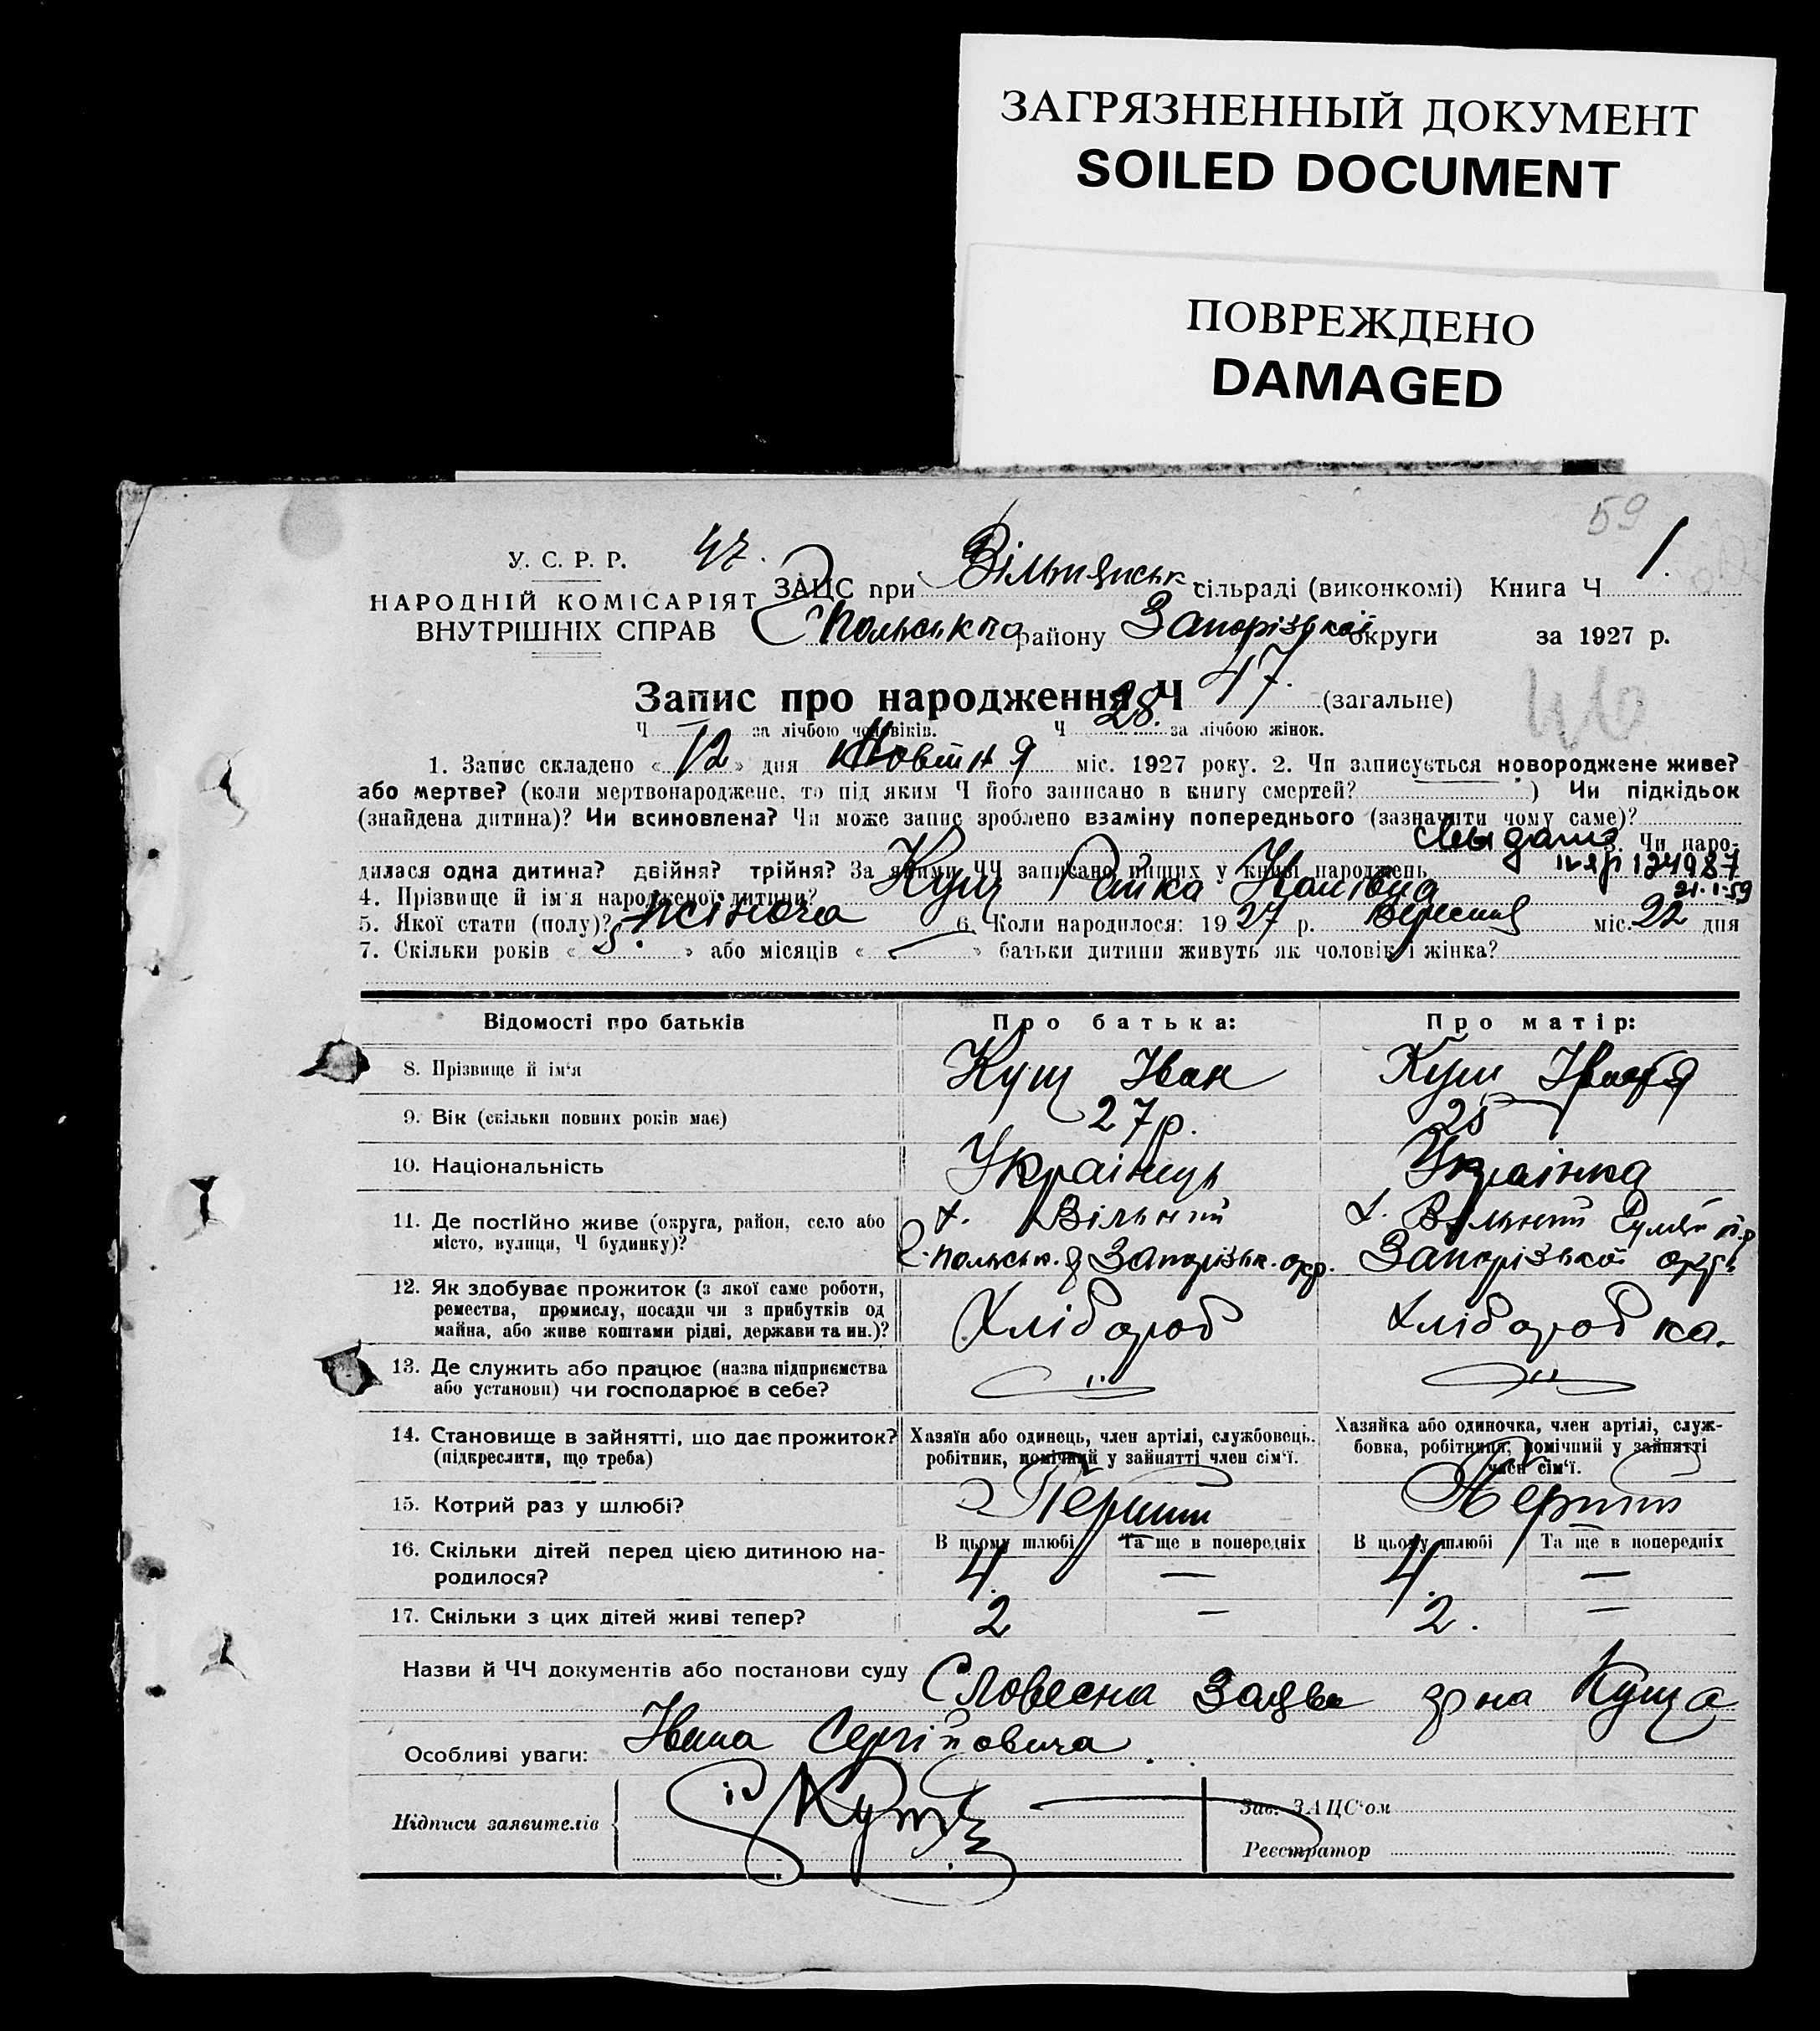 ЗАГРЯЗНЕННЫЙ ДОКУМЕНТ
SOILED DOCUMENT
ПОВРЕЖДЕНО
DAMAGED
59
У. С. Р. Р.
47.
НАРОДНІЙ КОМІСАРІЯТ
ВНУТРІШНІХ СПРАВ
ЗАЦС при Вільнянськ. сільраді (виконкомі) Книга Ч 1.
району Запорізької округи за 1927 р.
Запис про народження Ч 47. (загальне)
Ч — за лічбою чоловіків. Ч 28. за лічбою жінок.
1. Запис складено « 12 » дня Жовтня міс. 1927 року. 2. Чи записується новороджене живе?
або мертве? (коли мертвонароджене, то під яким Ч його записано в книгу смертей? ) Чи підкідьок
(знайдена дитина)? Чи всиновлена? Чи може запис зроблено взаміну попереднього (зазначити чому саме)?
3. Чи наро-
дилася одна дитина? двійня? трійня? За якими ЧЧ записано инших у книзі народжень
21.1-59
4. Прізвище й ім'я народженої дитини? Кущ
5. Якої стати (полу)? жіноча 6. Коли народилося: 1927 р. Вересня міс. 22 дня
7. Скільки років « 5. » або місяців « — » батьки дитини живуть як чоловік і жінка?
Відомості про батьків Про батька: Про матір:
8. Прізвище й ім'я Кущ Іван Кущ
9. Вік (скільки повних років має) 27 р. 25
10. Національність Українець Українка
11. Де постійно живе (округа, район, село або місто, вулиця, Ч будинку)? х. Вільний х. Вільний
Запорізьк. окр. Запорізької округ
12. Як здобуває прожиток (з якої саме роботи,
ремества, промислу, посади чи з прибутків од
майна, або живе коштами рідні, держави та ин.)? Хлібороб Хліборобка.
13. Де служить або працює (назва підприємства
або установи) чи господарює в себе? —"— —"—
14. Становище в зайнятті, що дає прожиток?
(підкреслити, що треба)
Хазяїн або одинець, член артілі, службовець.
робітник, помічний у зайнятті член сім'ї.
Хазяйка або одиночка, член артілі, служ-
бовка, робітниця, помічний у зайнятті
член сім'ї.
15. Котрий раз у шлюбі? Перший Перший
В цьому шлюбі Та ще в попередніх В цьому шлюбі Та ще в попередніх
16. Скільки дітей перед цією дитиною на-
родилося? 4. — 4. —
17. Скільки з цих дітей живі тепер? 2 — 2. —
Назви й ЧЧ документів або постанови суду Словесна заява гр-на Куща
Івана Сергійовича.
Особливі уваги:
Підписи заявителів Кущ
Зав. ЗАЦС'ом
Реєстратор